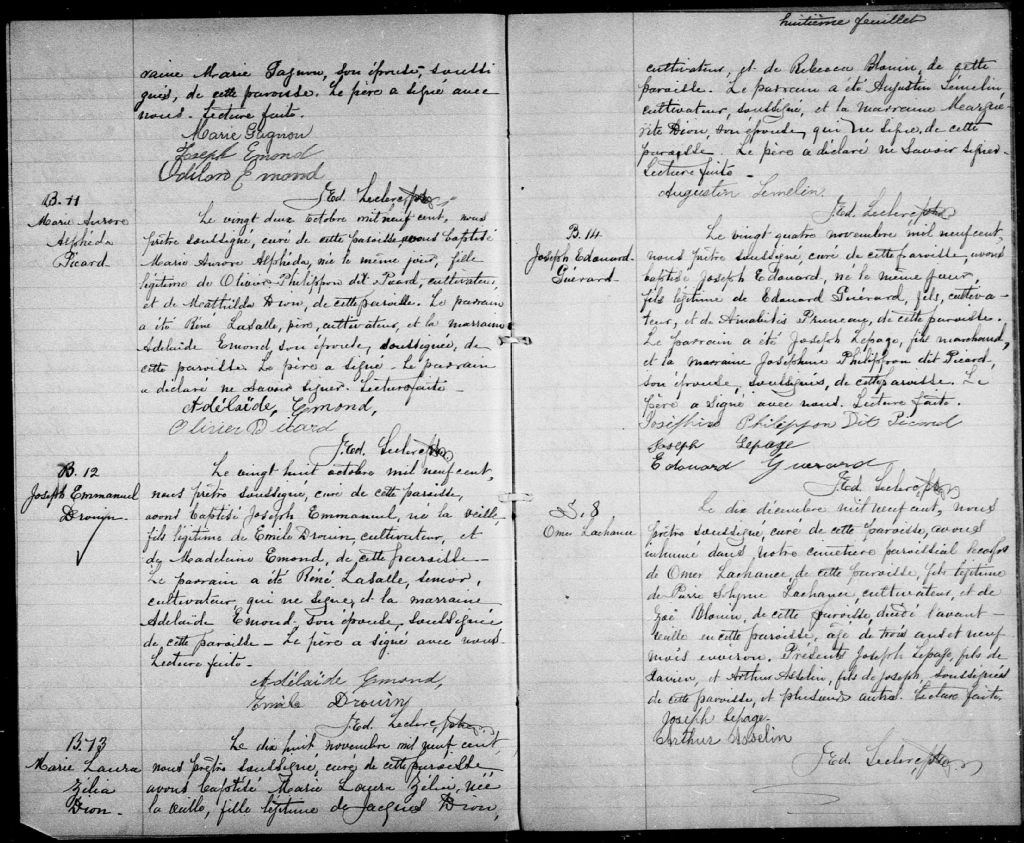 raine Marie Gagnon, son épouse, soussi
gnés, de cette paroisse. Le père a signé avec
nous. Lecture faite.
Marie Gagnon
Joseph Emond
Odilon Emond
J Ed. Leclerc ptre
B. 11
Marie Aurore
Alphéda
Picard
Le vingt deux Octobre mil neuf cent, nous
prêtre soussigné, curé de cette paroisse avons baptisé
Marie Aurore Alphéda, née le même jour, fille
légitime de Olivier Philippon dit Picard, cultivateur,
et de Mathilda Dion, de cette paroisse. Le parrain
a été Réné Lasalle, père, cultivateur, et la marraine
Adelaïde Emond, son épouse, soussignée, de
cette paroisse. Le père a signé. Le parrain
a déclaré ne savoir signer. Lecture faite.
Adélaïde, Emond,
Olivier Picard
J. Ed. Leclerc ptre
B. 12
Joseph Emmanuel
Drouin
Le vingt huit octobre mil neuf cent,
nous prêtre soussigné, curé de cette paroisse,
avons baptisé Joseph Emmanuel, né la veille,
fils légitime de Emile Drouin, cultivateur, et
de Madeleine Emond, de cette paroisse.
Le parrain a été Réné Lasalle, senior,
cultivateur qui ne signe, et la marraine
Adelaïde Emond son épouse, soussignée
de cette paroisse. Le père a signé avec nous.
Lecture faite.
Adélaïde Emond,
Emile Drouin
J Ed. Leclerc ptre
B. 13
Marie Laura
Zélia
Dion.
Le dix huit novembre mil neuf cent,
nous prêtre soussigné, curé de cette paroisse
avons baptisé Marie Laura Zélia, née
la veille, fille légitime de Jacques Dion,
huitième feuillet
cultivateur, et de Rebecca Blouin, de cette
paroisse. Le parrain a été Augustin Sémelin,
cultivateur, soussigné, et la marraine Margue-
rite Dion, son épouse, qui ne signe, de cette
paroisse. Le père a déclaré ne savoir signer
Lecture faite.
Augustin Lemelin.
J Ed. Leclerc ptre
B. 14
Joseph Edouard
Guérard
Le vingt quatre novembre mil neuf cent,
nous prêtre soussigné, curé de cette paroisse, avons
baptisé Joseph Edouard, né le même jour,
fils légitime de Edouard Guérard, fils, cultiva-
teur, et de Amabilis Pruneau, de cette paroisse.
Le parrain a été Joseph Lepage, fils marchand,
et la marraine Josephine Philippon dit Picard,
son épouse, soussignés, de cette paroisse. Le
père a signé avec nous. Lecture faite.
Joséphine Philippon Dit Picard
Joseph Lepage
Edouard Guerard
J Ed. Leclerc ptre
S. 8
Omer Lachance
Le dix décembre mil neuf cent, nous
prêtre soussigné, curé de cette paroisse, avons
inhumé dans notre cimetière paroissial le corps
de Omer Lachance, de cette paroisse, fils légitime
de Pierre Lachance, cultivateur, et de
Zoé Blouin, de cette paroisse, décédé l'avant-
veille en cette paroisse, âgé de trois ans et neuf
mois environ. Présents Joseph Lepage, fils de
Xavier, et Arthur Asselin, fils de Joseph, soussignés
de cette paroisse, et plusieurs autres. Lecture faite.
Joseph Lepage.
Arthur Asselin
J Ed. Leclerc ptre